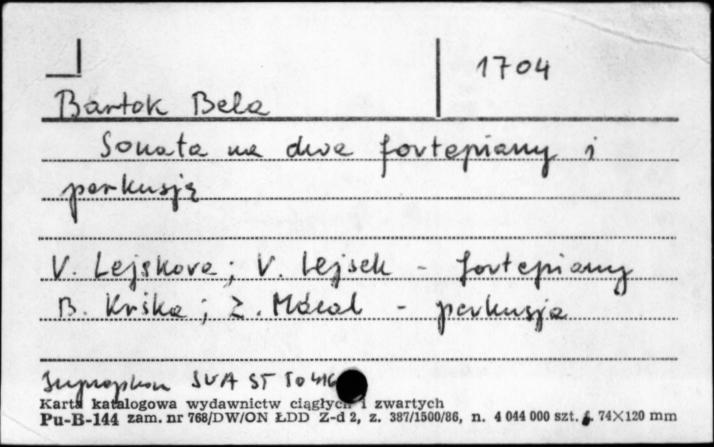 1704
Bartok Bela
Sonata na dwa fortepiany i
perkusję
V. Lejskova; V. Lejsek - fortepiany
B. Krška; Z. Mácal - perkusja
Supraphon SUA ST 50416
Karta katalogowa wydawnictw ciągłych i zwartych
Pu-B-144 zam. nr 768/DW/ON ŁDD Z-d 2, z. 387/1500/86, n. 4 044 000 szt. f. 74×120 mm